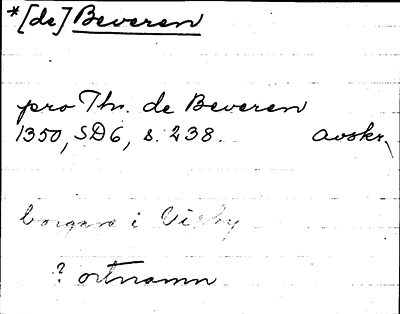 *[de] Beveren
pro Th. de Beveren
1350, SD6, s. 238. avskr.
borgare i Visby
? ortnamn